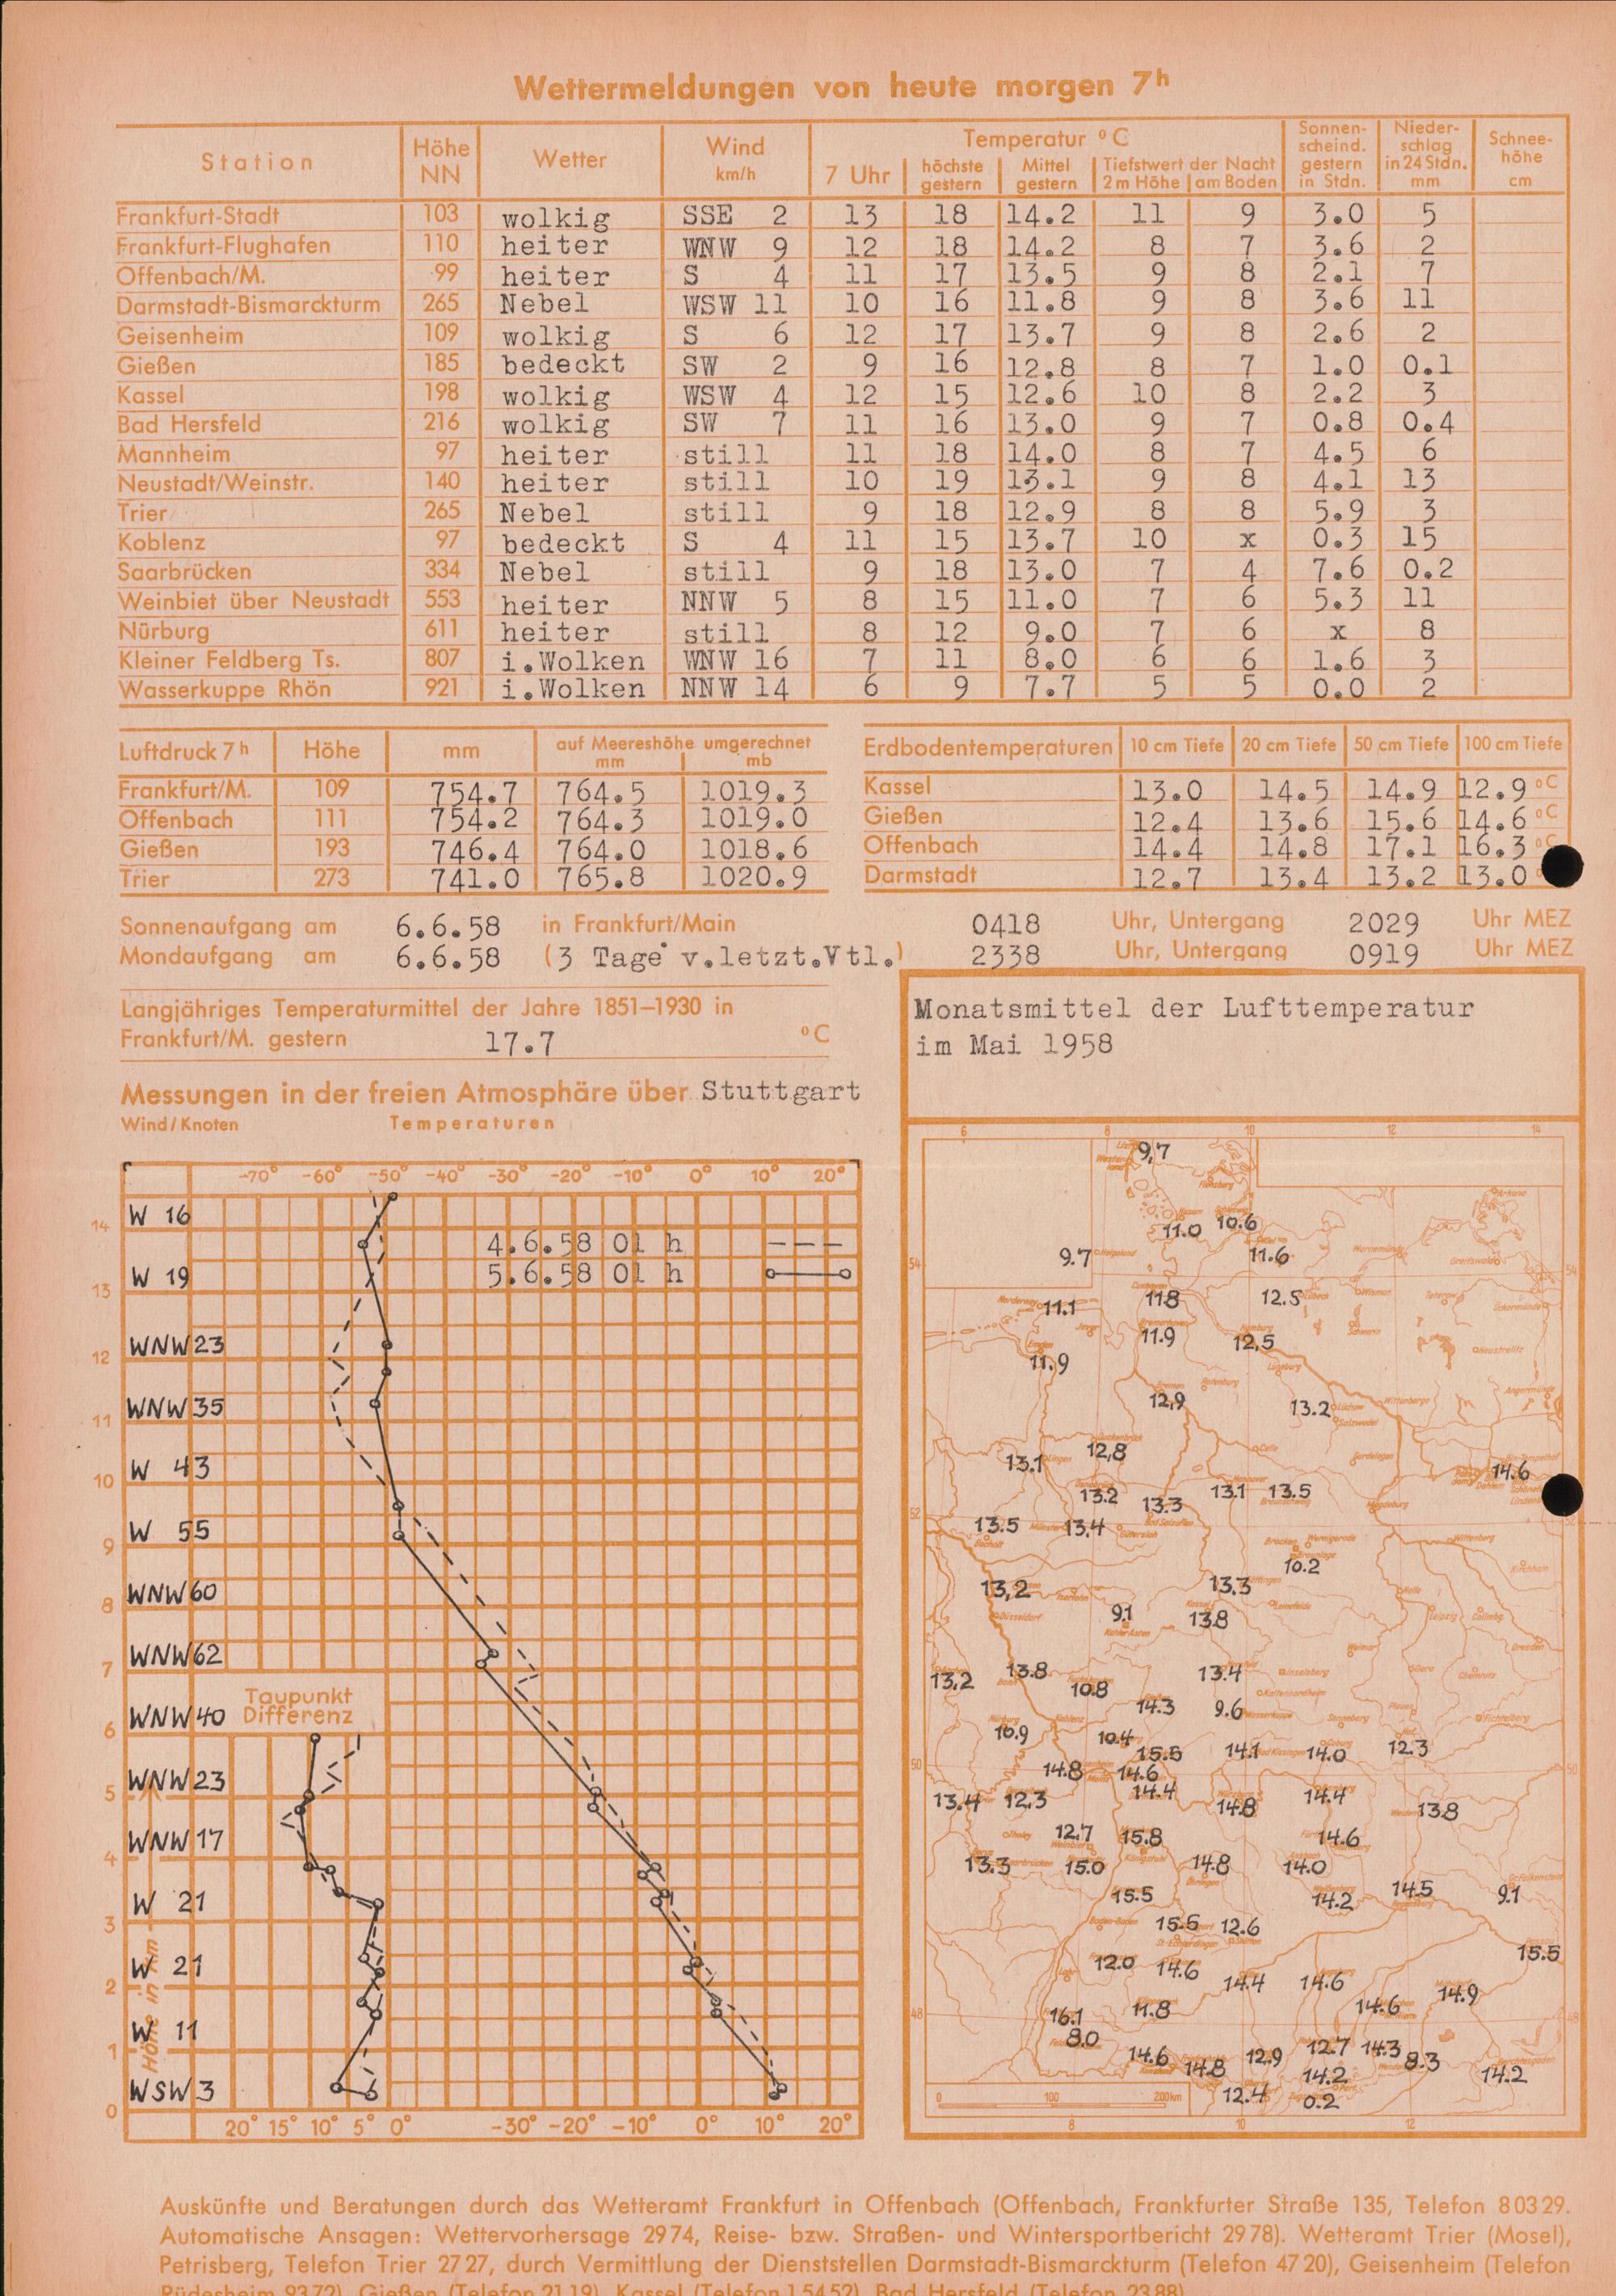 Wettermeldungen von heute morgen 7ʰ
Station Höhe NN Wetter Wind km/h Temperatur °C Sonnenscheind. gestern in Stdn. Niederschlag in 24 Stdn. mm Schneehöhe cm
7 Uhr höchste gestern Mittel gestern Tiefstwert der Nacht 2 m Höhe am Boden
Frankfurt-Stadt 103 wolkig SSE 2 13 18 14.2 11 9 3.0 5
Frankfurt-Flughafen 110 heiter WNW 9 12 18 14.2 8 7 3.6 2
Offenbach/M. 99 heiter S 4 11 17 13.5 9 8 2.1 7
Darmstadt-Bismarckturm 265 Nebel WSW 11 10 16 11.8 9 8 3.6 11
Geisenheim 109 wolkig S 6 12 17 13.7 9 8 2.6 2
Gießen 185 bedeckt SW 2 9 16 12.8 8 7 1.0 0.1
Kassel 198 wolkig WSW 4 12 15 12.6 10 8 2.2 3
Bad Hersfeld 216 wolkig SW 7 11 16 13.0 9 7 0.8 0.4
Mannheim 97 heiter still 11 18 14.0 8 7 4.5 6
Neustadt/Weinstr. 140 heiter still 10 19 13.1 9 8 4.1 13
Trier 265 Nebel still 9 18 12.9 8 8 5.9 3
Koblenz 97 bedeckt S 4 11 15 13.7 10 x 0.3 15
Saarbrücken 334 Nebel still 9 18 13.0 7 4 7.6 0.2
Weinbiet über Neustadt 553 heiter NNW 5 8 15 11.0 7 6 5.3 11
Nürburg 611 heiter still 8 12 9.0 7 6 x 8
Kleiner Feldberg Ts. 807 i.Wolken WNW 16 7 11 8.0 6 6 1.6 3
Wasserkuppe Rhön 921 i.Wolken NNW 14 6 9 7.7 5 5 0.0 2
Luftdruck 7ʰ Höhe mm auf Meereshöhe umgerechnet mm mb
Frankfurt/M. 109 754.7 764.5 1019.3
Offenbach 111 754.2 764.3 1019.0
Gießen 193 746.4 764.0 1018.6
Trier 273 741.0 765.8 1020.9
Erdbodentemperaturen 10 cm Tiefe 20 cm Tiefe 50 cm Tiefe 100 cm Tiefe
Kassel 13.0 14.5 14.9 12.9 °C
Gießen 12.4 13.6 15.6 14.6 °C
Offenbach 14.4 14.8 17.1 16.3 °C
Darmstadt 12.7 13.4 13.2 13.0
Sonnenaufgang am 6.6.58 in Frankfurt/Main 0418 Uhr, Untergang 2029 Uhr MEZ
Mondaufgang am 6.6.58 (3 Tage v.letzt.Vtl.) 2338 Uhr, Untergang 0919 Uhr MEZ
Langjähriges Temperaturmittel der Jahre 1851–1930 in
Frankfurt/M. gestern 17.7 °C
Messungen in der freien Atmosphäre über Stuttgart
Wind/Knoten Temperaturen
-70° -60° -50° -40° -30° -20° -10° 0° 10° 20°
14 W 16
4.6.58 01 h
5.6.58 01 h
13 W 19
12 WNW 23
11 WNW 35
10 W 43
9 W 55
8 WNW 60
7 WNW 62
6 WNW 40
Taupunkt
Differenz
5 WNW 23
4 WNW 17
3 W 21
2 W 21
1 W 11
0 WSW 3
Höhe in km
20° 15° 10° 5° 0° -30° -20° -10° 0° 10° 20°
Monatsmittel der Lufttemperatur
im Mai 1958
6 8 10 12 14
9,7
11.0 10.6
9.7 11.6
54 54
11.1 11.8 12.5
11.9 12,5
11.9
12,9 13.2
13.1 12,8 14.6
13.2 13.3 13.1 13.5
52
13.5 13.4
10.2
13,2 13.3
9.1 13.8
13,2 13.8 10.8 13.4
14.3 9.6
10.9 10.4 15.5 14.1 14.0 12.3
50 14.8 14.6 50
13.4 12.3 14.4 14.8 14.4 13.8
12.7 15.8 14.6
13.3 15.0 14.8 14.0
15.5 14.2 14.5 9.1
15.5 12.6 15.5
12.0 14.6 14.4 14.6
48 16.1 11.8 14.6 14.9 48
8.0 14.6 14.8 12.9 12.7 14.3 8.3
12.4 14.2 14.2
0.2
0 100 200km
8 10 12
Auskünfte und Beratungen durch das Wetteramt Frankfurt in Offenbach (Offenbach, Frankfurter Straße 135, Telefon 8 03 29.
Automatische Ansagen: Wettervorhersage 29 74, Reise- bzw. Straßen- und Wintersportbericht 29 78). Wetteramt Trier (Mosel),
Petrisberg, Telefon Trier 27 27, durch Vermittlung der Dienststellen Darmstadt-Bismarckturm (Telefon 47 20), Geisenheim (Telefon
Rüdesheim 93 72), Gießen (Telefon 21 19), Kassel (Telefon 1 54 52), Bad Hersfeld (Telefon 23 88)